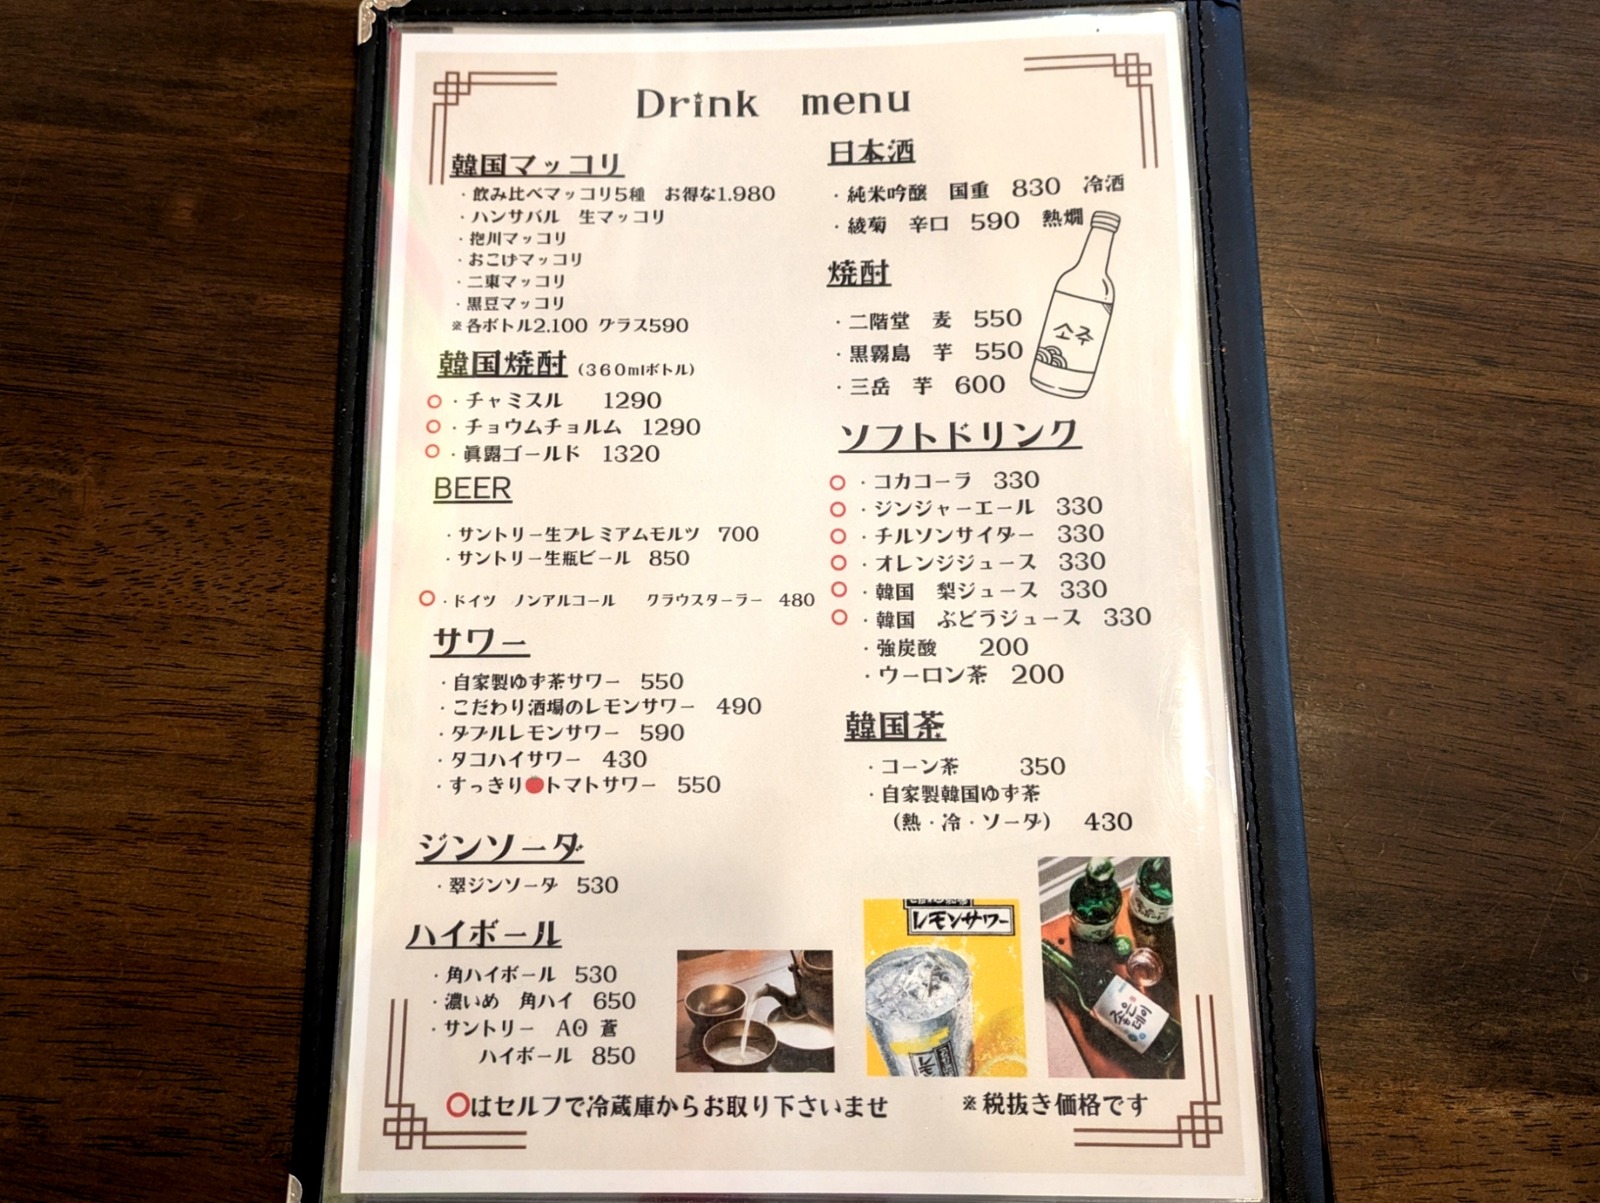 Drink menu
韓国マッコリ
・飲み比べマッコリ5種 お得な1.980
・ハンサバル 生マッコリ
・抱川マッコリ
・おこげマッコリ
・二東マッコリ
・黒豆マッコリ
※各ボトル2.100 グラス590
韓国焼酎 (360mlボトル)
○・チャミスル 1290
○・チョウムチョルム 1290
○・眞露ゴールド 1320
BEER
・サントリー生プレミアムモルツ 700
・サントリー生瓶ビール 850
○・ドイツ ノンアルコール クラウスターラー 480
サワー
・自家製ゆず茶サワー 550
・こだわり酒場のレモンサワー 490
・ダブルレモンサワー 590
・タコハイサワー 430
・すっきり🍅トマトサワー 550
ジンソーダ
・翠ジンソーダ 530
ハイボール
・角ハイボール 530
・濃いめ 角ハイ 650
・サントリー AO 蒼
ハイボール 850
日本酒
・純米吟醸 国重 830 冷酒
・綾菊 辛口 590 熱燗
焼酎
・二階堂 麦 550
・黒霧島 芋 550
・三岳 芋 600
소주
ソフトドリンク
○・コカコーラ 330
○・ジンジャーエール 330
○・チルソンサイダー 330
○・オレンジジュース 330
○・韓国 梨ジュース 330
○・韓国 ぶどうジュース 330
・強炭酸 200
・ウーロン茶 200
韓国茶
・コーン茶 350
・自家製韓国ゆず茶
(熱・冷・ソーダ) 430
レモンサワー
좋은데이
○はセルフで冷蔵庫からお取り下さいませ
※税抜き価格です